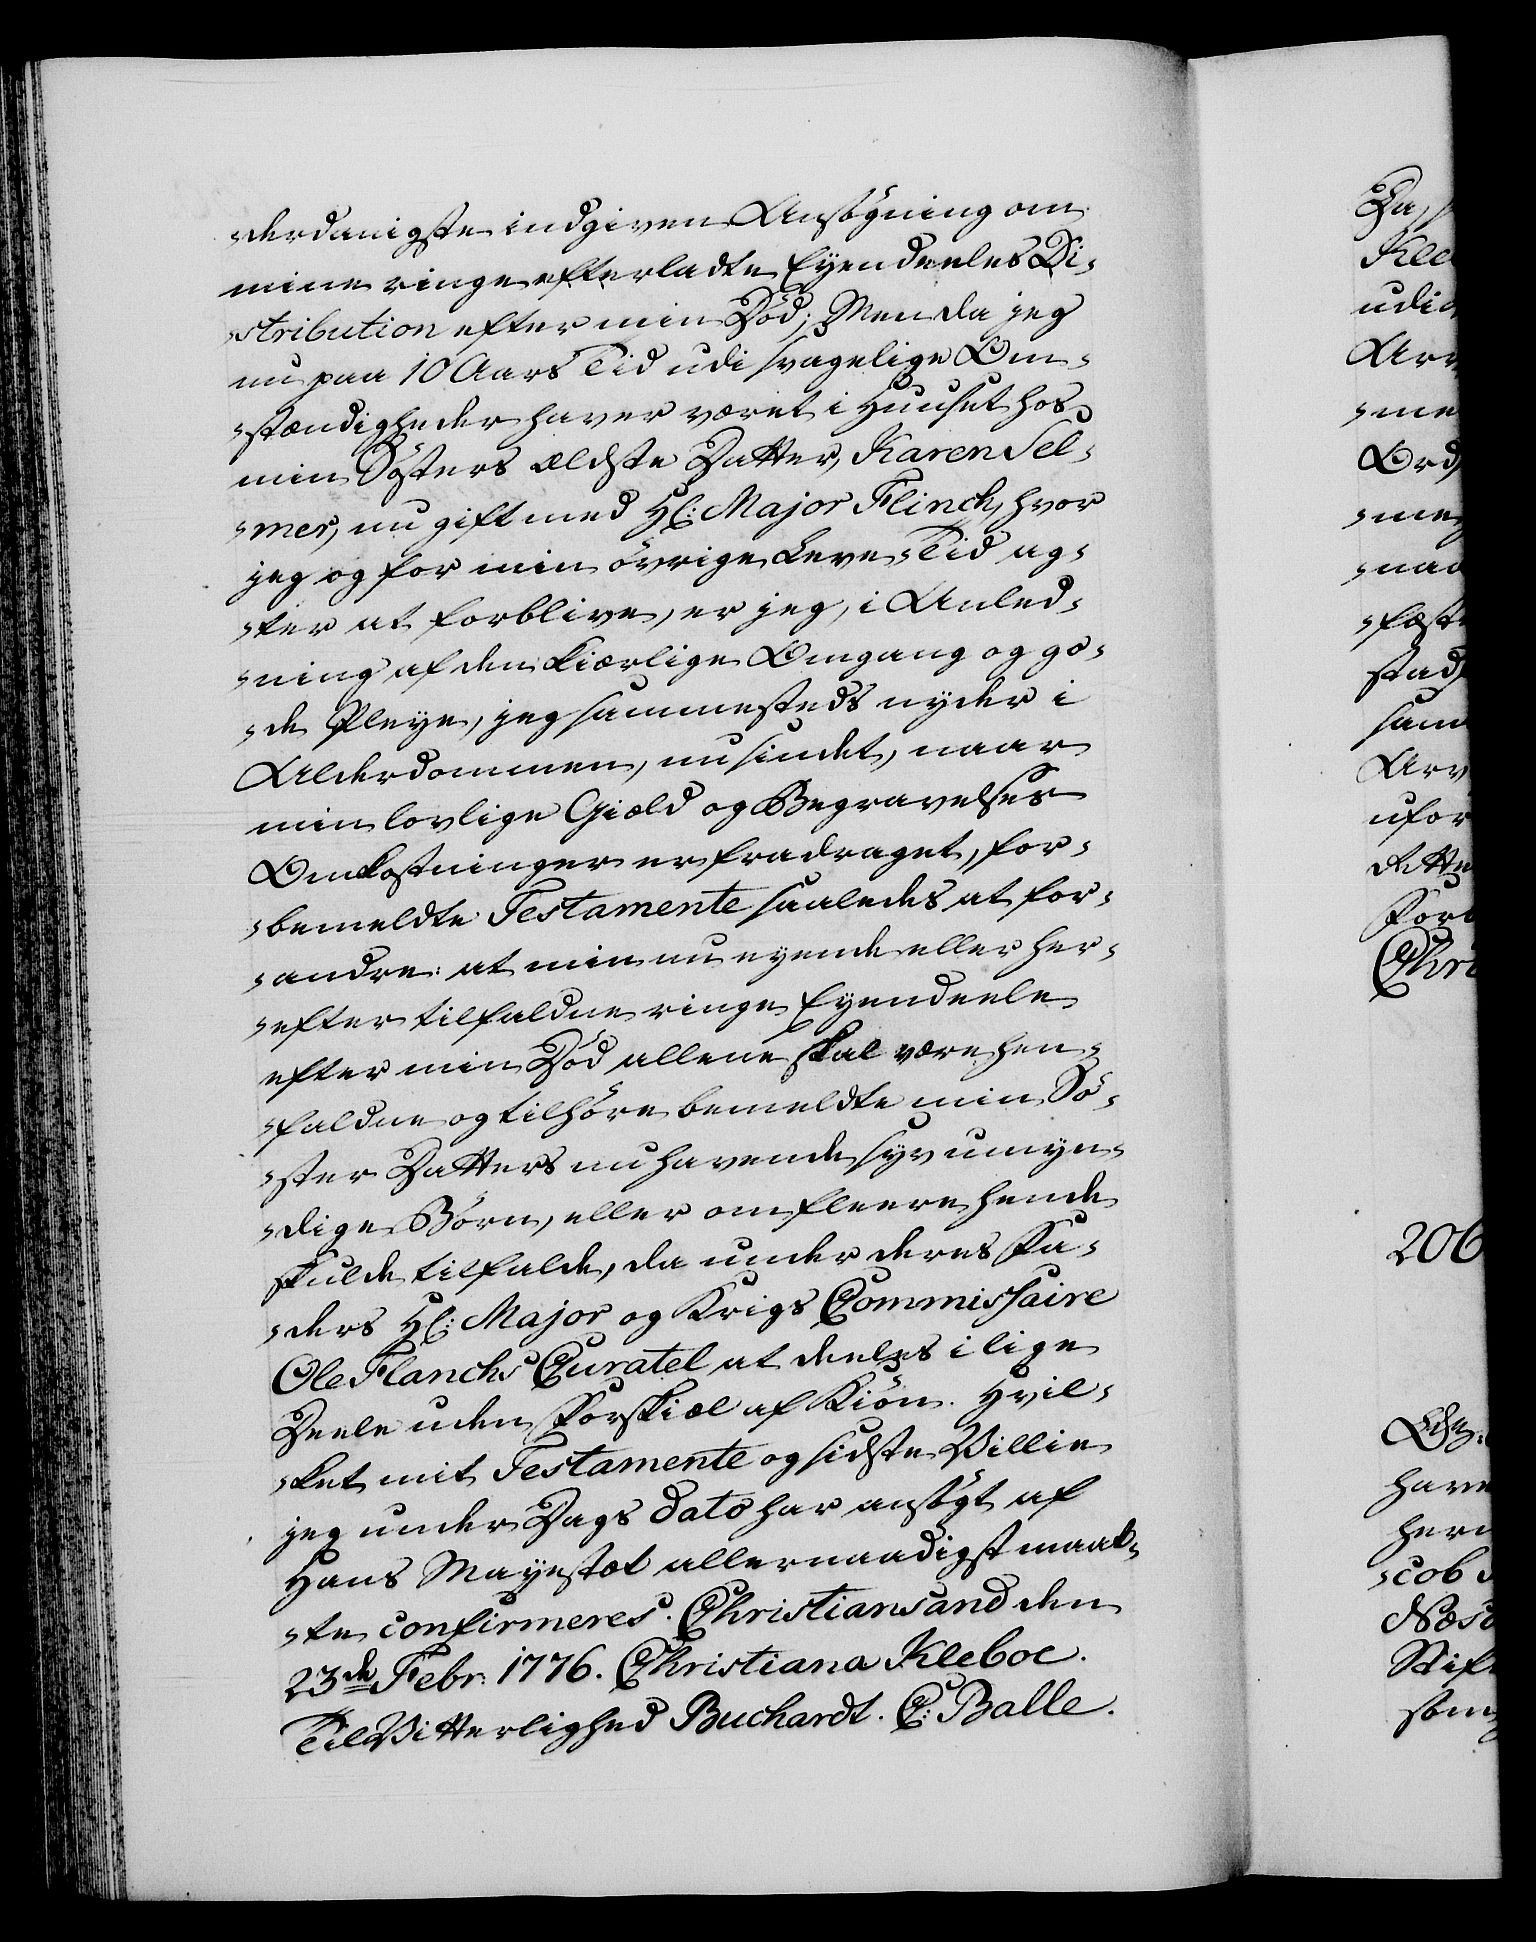 derdanigste indgiven Ansögning om
mine ringe efterladte Eyendeeles Di-
stribution efter min Död; Men da jeg
nu paa 10 Aars Tid udi svagelige Om-
stændigheder haver været i Huuset hos
min Sösters ældste Datter, Karen Sel-
mer, nu gift med Hr: Major Flinch, hvor
jeg og for min övrige Leve-Tid ag-
ter at forblive, er jeg, i Anled-
ning af den kiærlige Omgang og go-
de Pleye, jeg sammesteds nyder i
Alderdommen, nu sindet, naar
min lovlige Giæld og Begravelses
Omkostninger er fradraget, for-
bemeldte Testamente saaledes at for-
andre: at min nu eyende eller her-
efter tilfaldne ringe Eyendeele
efter min Död allene skal være hen-
faldne og tilhöre bemeldte min Sö-
ster Datters nu havende syv umyn-
dige Börn, eller om fleere hende
skulde tilfalde, da under deres Fa-
ders Hr: Major og Krigs Commissaire
Ole Flanchs Curatel at deeles i lige
Deele uden Forskiæl af Kiön. Hvil-
ket mit Testamente og sidste Villie
jeg under Dags Dato har ansögt af
Hans Mayestæt allernaadigst maat-
te confirmeres. Christiansand den
23de Febr: 1776. Christiana Kleboe.
Til Vitterlighed Buchardt. C: Balle.
Da,
udi
Arv
me
Ord
me
naa
fæst
stad
sam
Arv
ufor
dette
Chri
206
have
her
cob
Stif
som